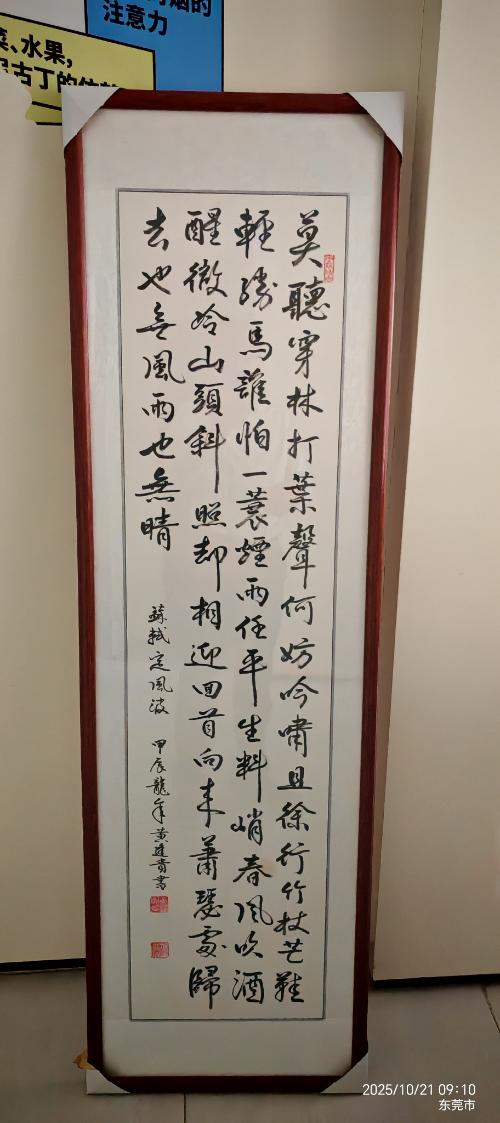 莫聽穿林打葉聲何妨吟嘯且徐行竹杖芒鞋
輕勝馬誰怕一蓑煙雨任平生料峭春風吹酒
醒微冷山頭斜照却相迎回首向来蕭瑟處歸
去也無風雨也無晴
蘇軾定風波 甲辰龍年黃建貴書
的
注意力
菜、水果,
2025/10/21 09:10
东莞市